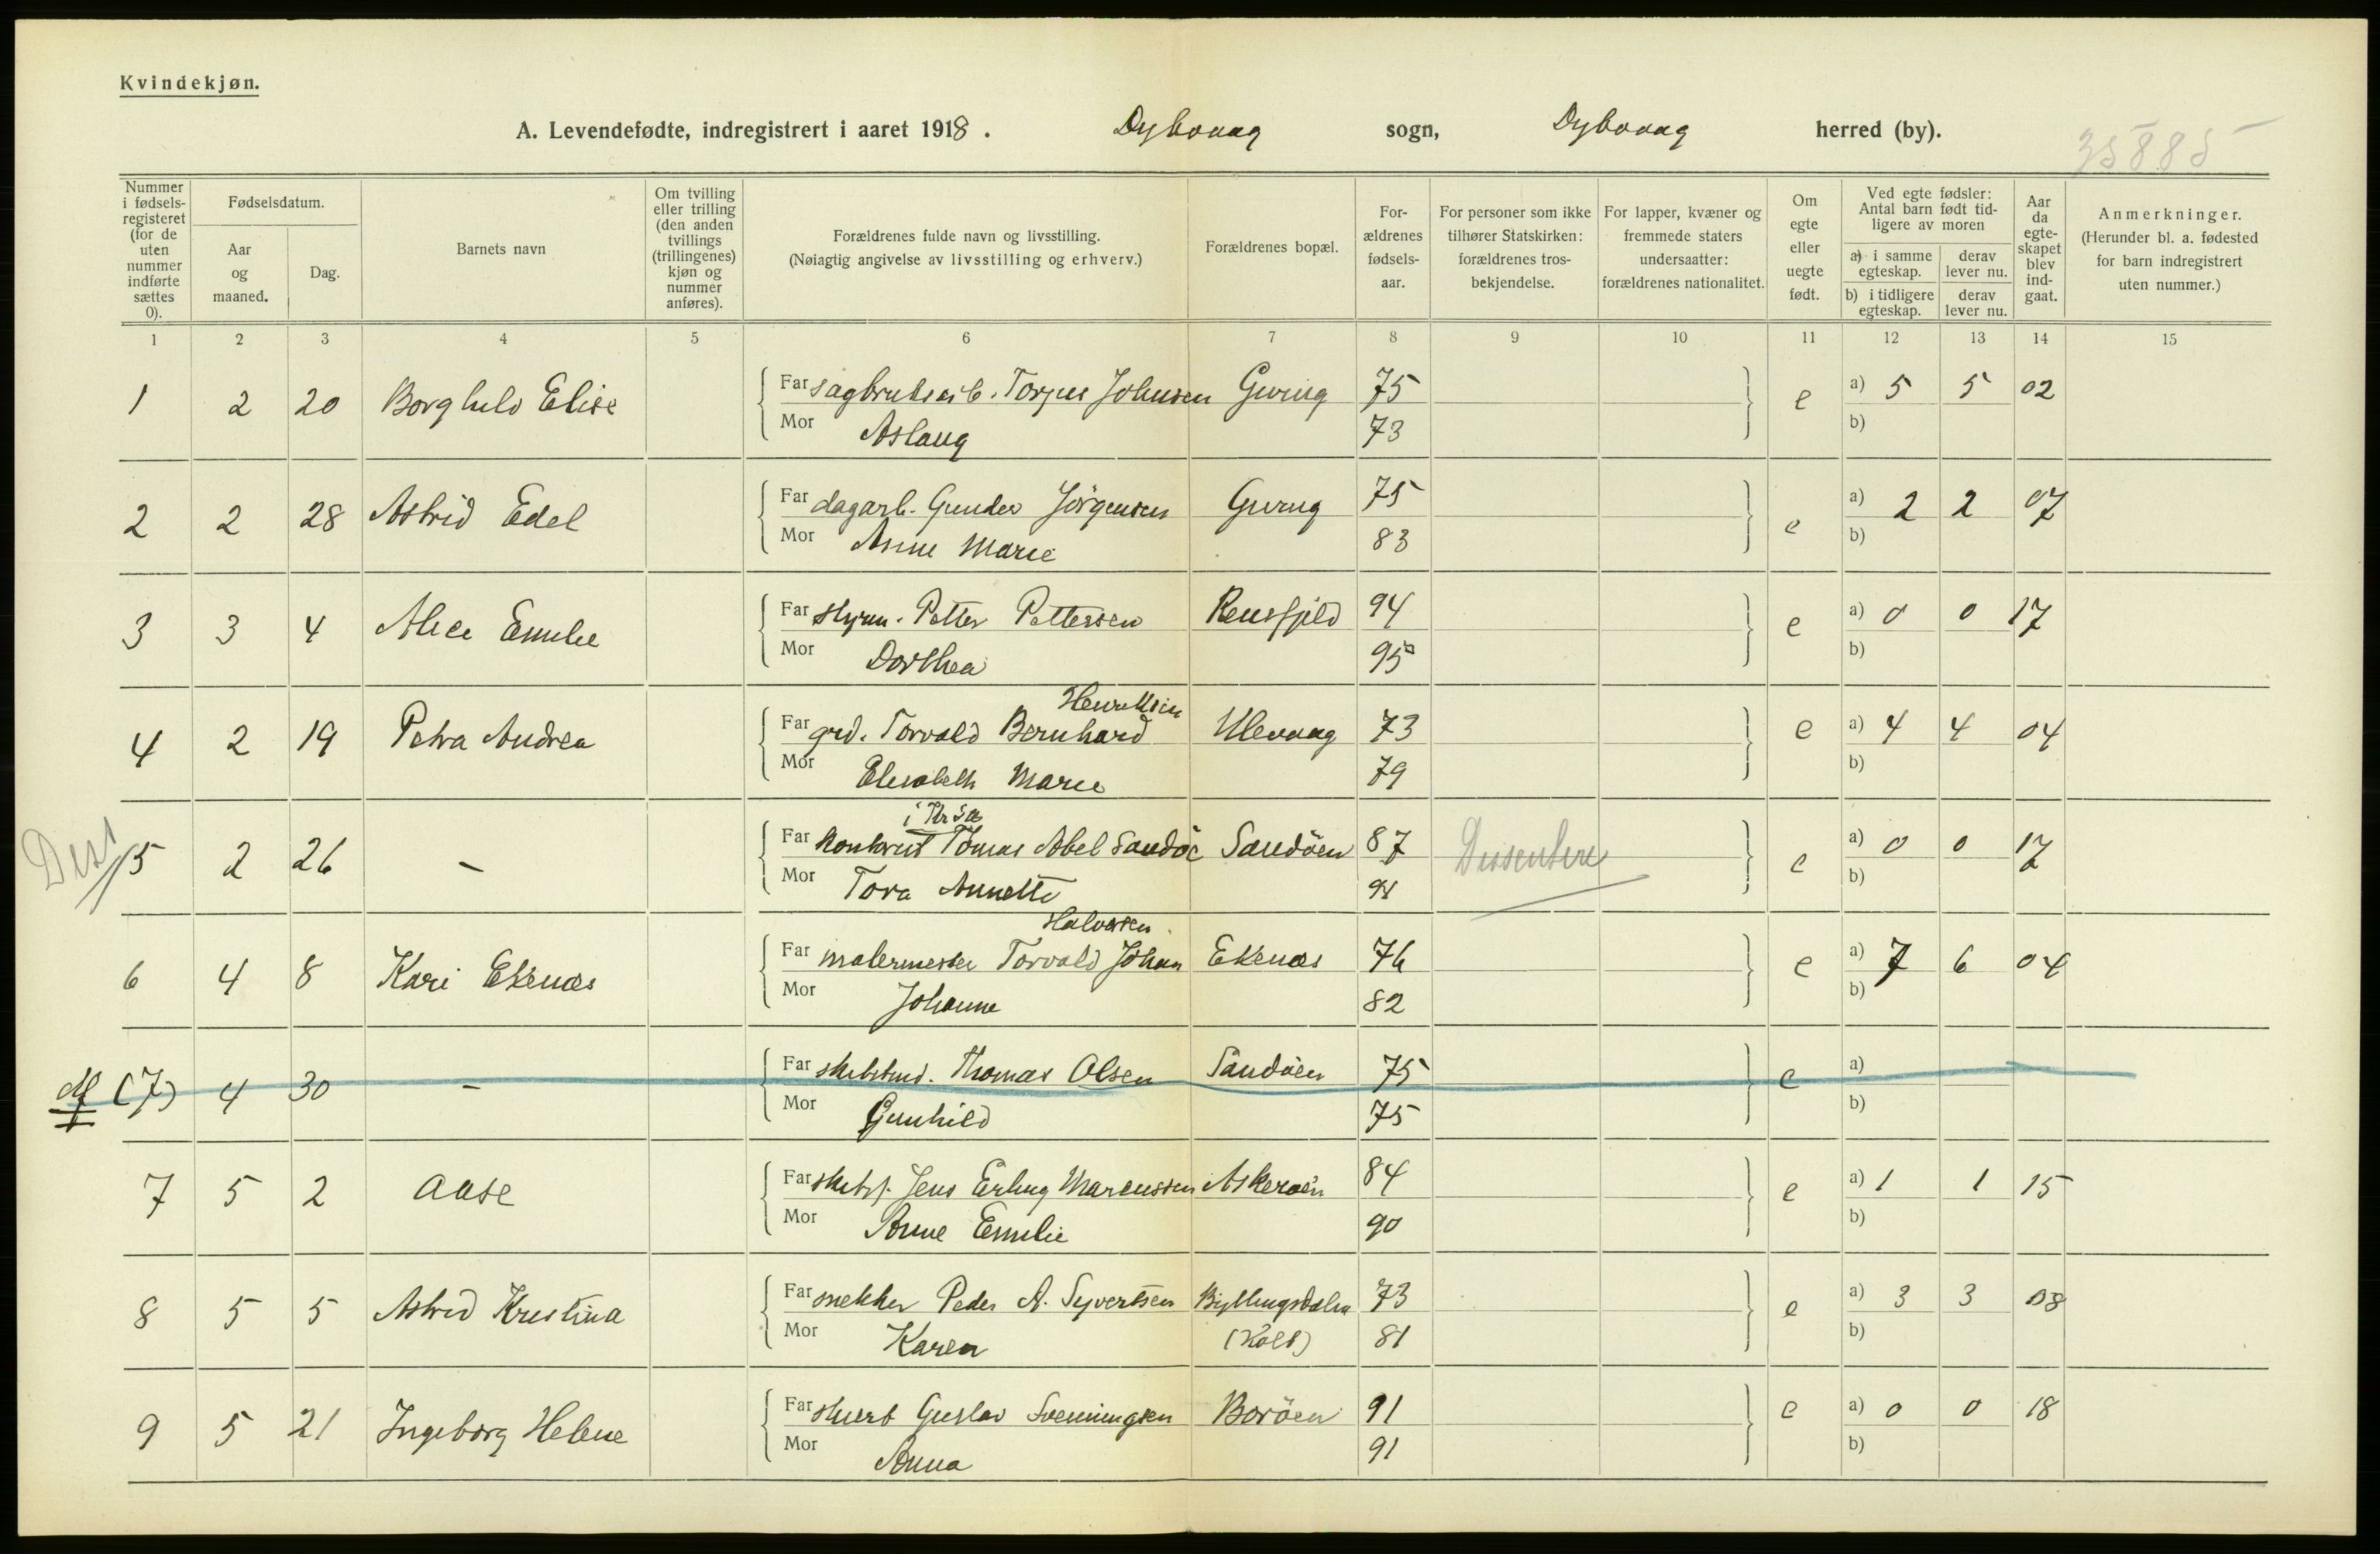 Kvindekjøn.
A. Levendefødte, indregistrert i aaret 1918. Dybvaag sogn, Dybvaag herred (by).
35885
Nummer i fødsels-registeret (for de uten nummer indførte sættes 0).
Fødselsdatum.
Aar og maaned.
Dag.
Barnets navn
Om tvilling eller trilling (den anden tvillings (trillingenes) kjøn og nummer anføres).
Forældrenes fulde navn og livsstilling.
(Nøiagtig angivelse av livsstilling og erhverv.)
Forældrenes bopæl.
For-ældrenes fødsels-aar.
For personer som ikke tilhører Statskirken: forældrenes tros-bekjendelse.
For lapper, kvæner og fremmede staters undersaatter: forældrenes nationalitet.
Om egte eller uegte født.
Ved egte fødsler: Antal barn født tid-ligere av moren
a) i samme egteskap.
derav lever nu.
b) i tidligere egteskap.
derav lever nu.
Aar da egte-skapet blev ind-gaat.
Anmerkninger.
(Herunder bl. a. fødested for barn indregistrert uten nummer.)
1 2 3 4 5 6 7 8 9 10 11 12 13 14 15
1 2 20 Borghild Elise Far sagbruksarb. Torjus Johnsen Gving 75 e a) 5 5 02
Mor Aslaug 73 b)
2 2 28 Astrid Edel Far dagarb. Gunder Jörgensen Gving 75 e a) 2 2 07
Mor Anne Marie 83 b)
3 3 4 Alice Emilie Far styrm. Petter Pettersen 94 e a) 0 0 17
Mor Dorthea 95 b)
Henriksen
4 2 19 Petra Andrea Far grd. Torvald Bernhard Ulevaag 73 e a) 4 4 04
Mor Elisabeth Marie 79 b)
i Kr sa
Diss 5 2 26 - Far Tomas Abel Sandö Sandöen 87 Dissentere e a) 0 0 17
Mor Tora Annette 94 b)
Halvorsen
6 4 8 Kari Ekenæs Far malermester Torvald Johan Ekenæs 76 e a) 7 6 04
Mor Johanne 82 b)
(7) 4 30 - Far Thomas Olsen Sandöen 75 e a)
Mor Gunhild 75 b)
7 5 2 Aase Far Jens Erling Marcussen Askeröen 84 e a) 1 1 15
Mor Anne Emilie 90 b)
8 5 5 Astrid Kristina Far snekker Peder A. Syvertsen 73 e a) 3 3 08
Mor Karen 81 b)
9 5 21 Ingeborg Helene Far Gustav Svenningsen Boröen 91 e a) 0 0 18
Mor Anna 91 b)